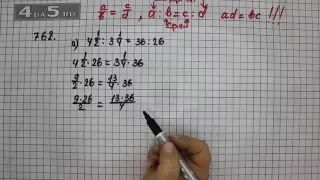 4DA5.RU
a/b = c/d , a : b = c : d ad = bc !!!
762.
а) 4 1/2 : 3 1/4 = 36 : 26
4 1/2 · 26 = 3 1/4 · 36
9/2 · 26 = 13/4 · 36
9·26/2 = 13·36/4